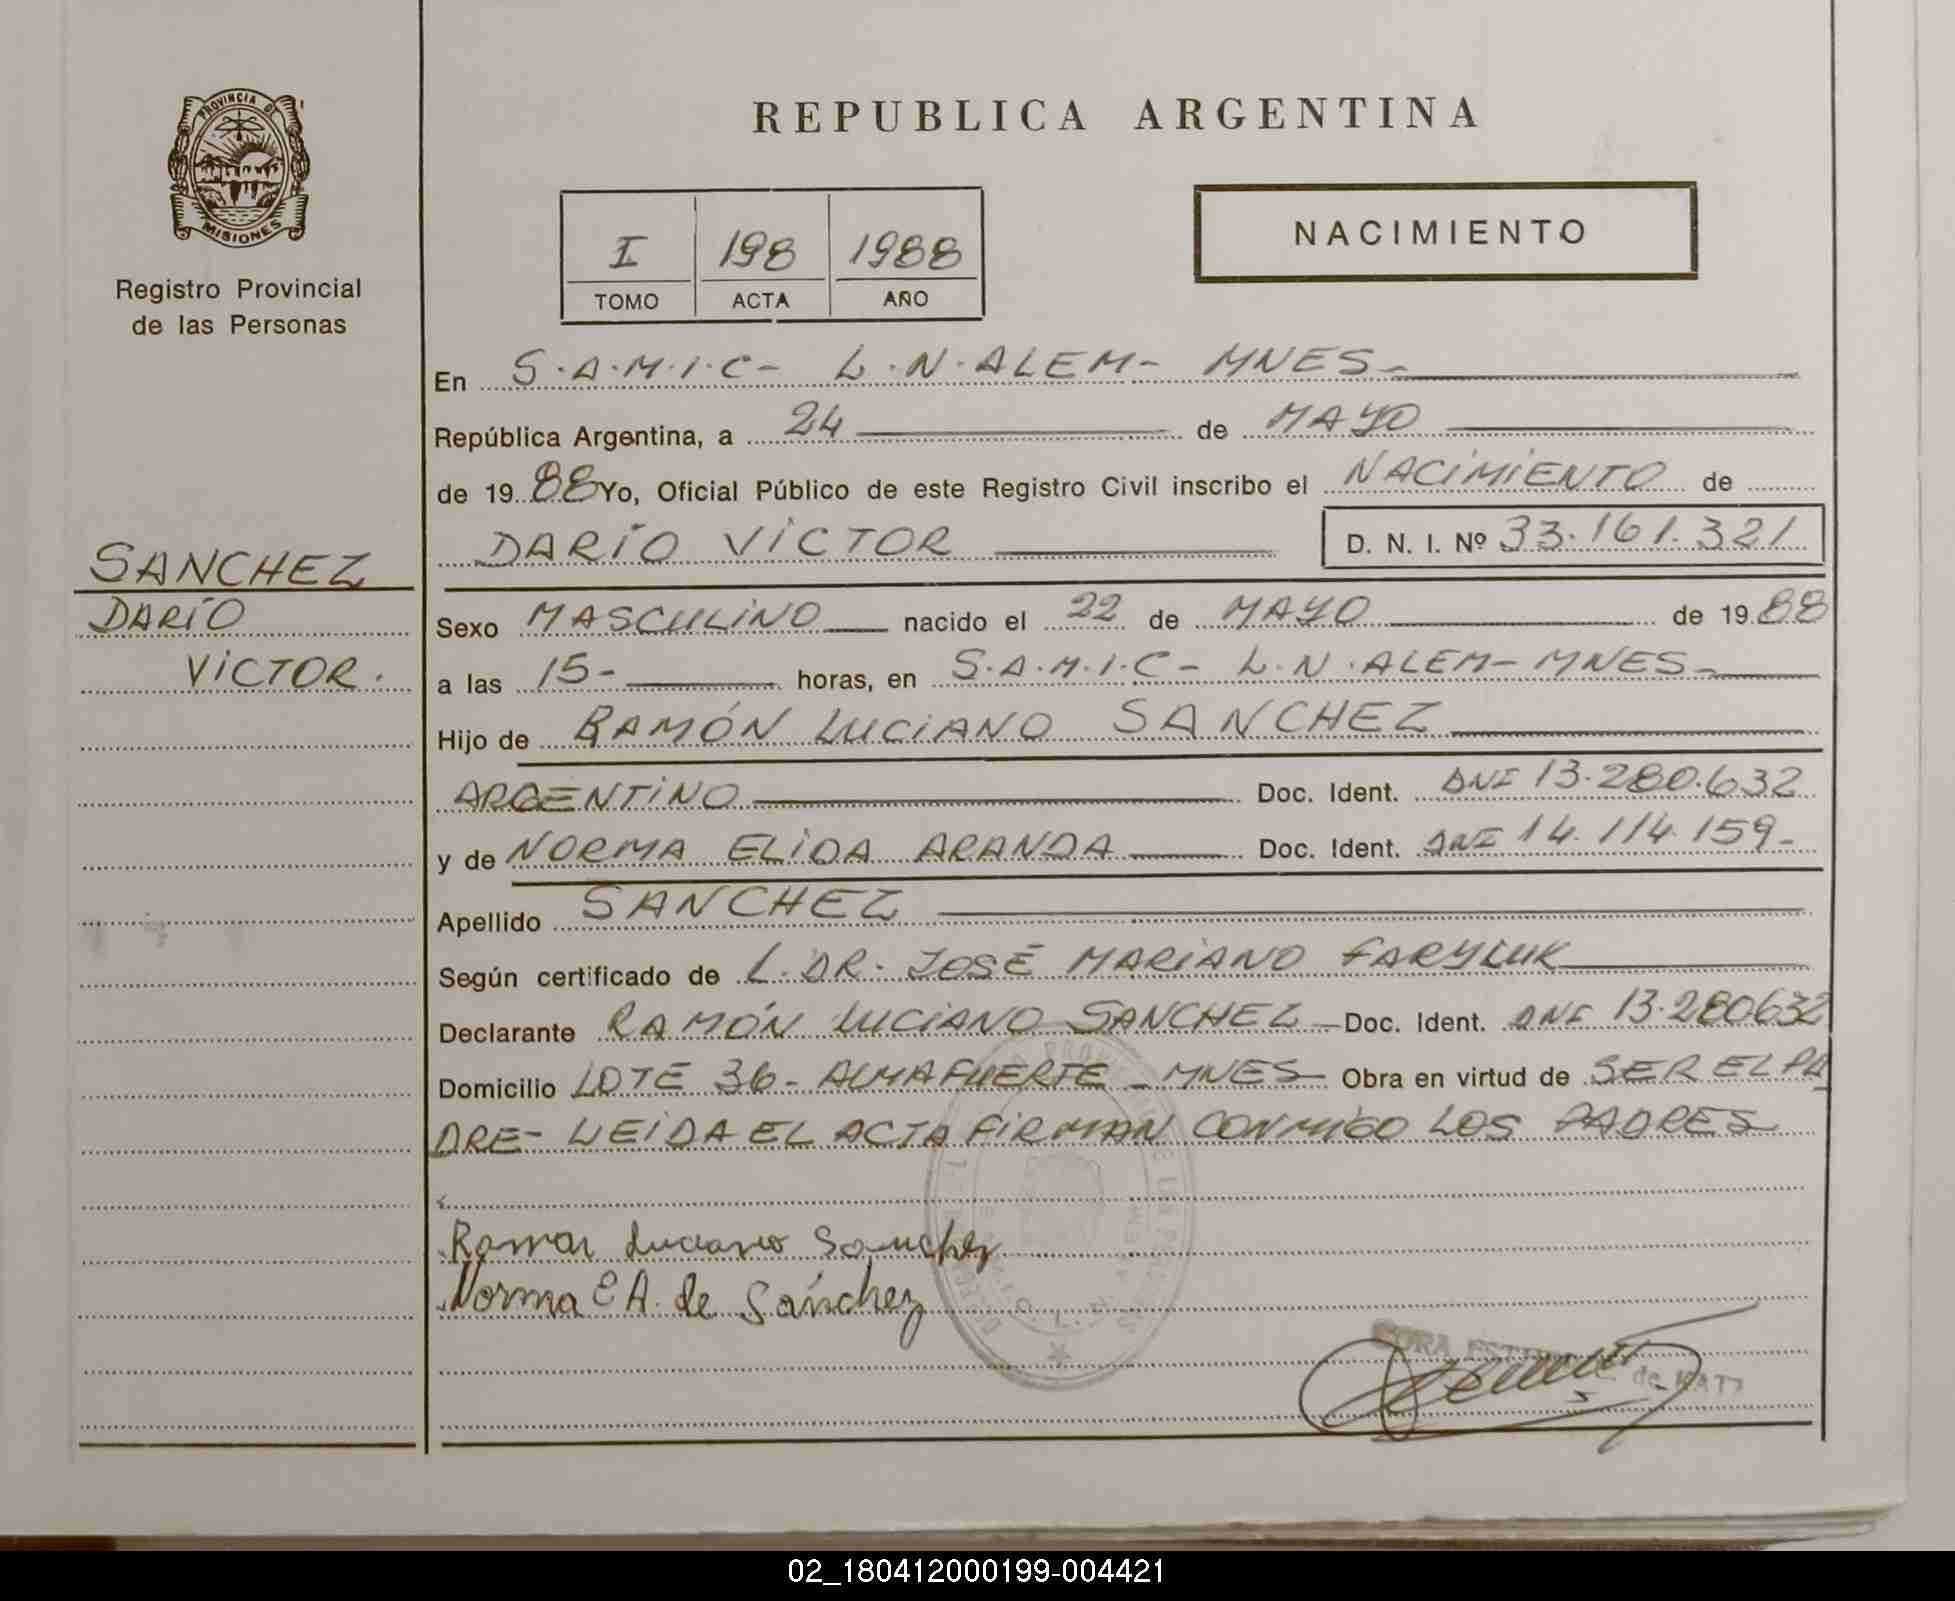 PROVINCIA DE
MISIONES
Registro Provincial
de las Personas
SANCHEZ
DARÍO
VICTOR.
REPUBLICA ARGENTINA
I 198 1988
TOMO ACTA AÑO
NACIMIENTO
En S.A.M.I.C- L.N.ALEM- MNES-
República Argentina, a 24 de MAYO
de 1988 Yo, Oficial Público de este Registro Civil inscribo el NACIMIENTO de
DARÍO VICTOR D. N. I. Nº 33.161.321
Sexo MASCULINO nacido el 22 de MAYO de 1988
a las 15- horas, en S.A.M.I.C- L.N.ALEM- MNES-
Hijo de RAMÓN LUCIANO SANCHEZ
ARGENTINO Doc. Ident. DNI 13.280.632
y de NORMA ELIDA ARANDA Doc. Ident. DNI 14.114.159-
Apellido SANCHEZ
Según certificado de L. DR. JOSÉ MARIANO FARYLUK
Declarante RAMÓN LUCIANO SANCHEZ Doc. Ident. DNI 13.280632
Domicilio LOTE 36- ALMAFUERTE - MNES Obra en virtud de SER EL PA
DRE- LEIDA EL ACTA FIRMAN CONMIGO LOS PADRES
Ramon Luciano Sanchez
Norma E A. de Sánchez
de KATZ
02_180412000199-004421